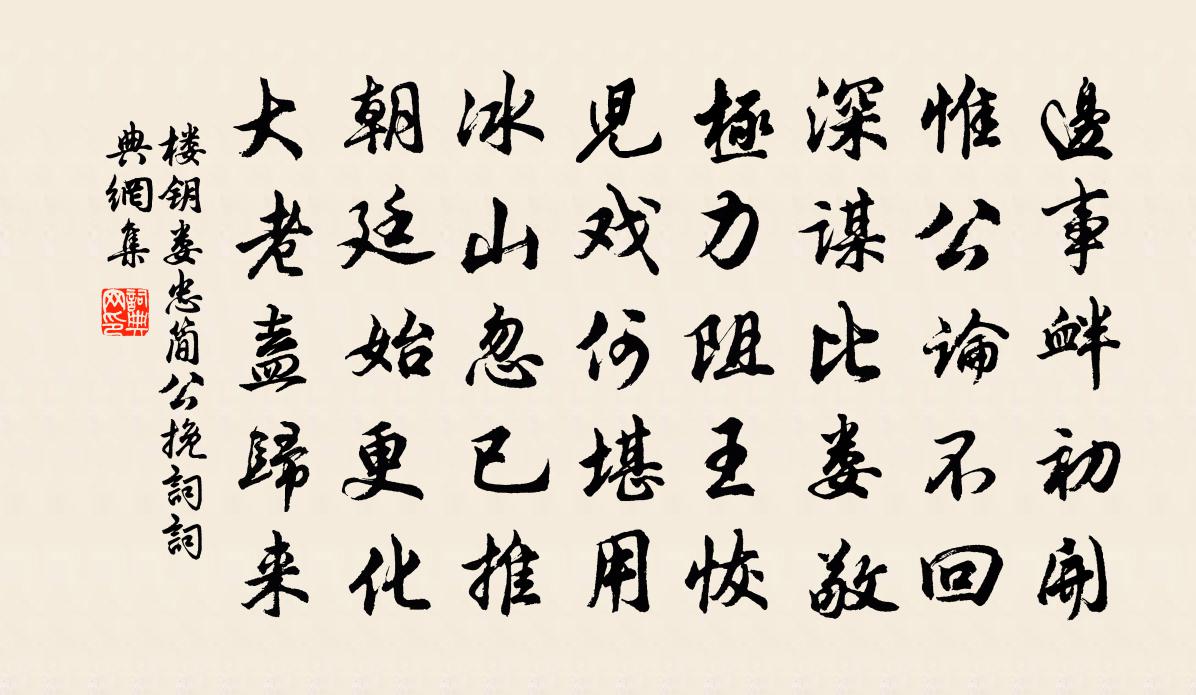 邊事衅初開
惟公論不回
深謀比娄敬
極力阻王恢
児戏何堪用
冰山忽已推
朝廷始更化
大老盍歸来
楼钥娄忠简公挽詞詞
典網集
詞典
网印